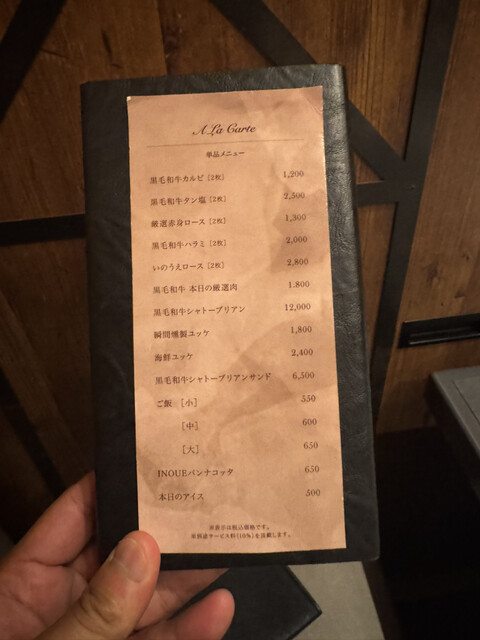 A La Carte
単品メニュー
黒毛和牛カルビ [2枚] 1,200
黒毛和牛タン塩 [2枚] 2,500
厳選赤身ロース [2枚] 1,300
黒毛和牛ハラミ [2枚] 2,000
いのうえロース [2枚] 2,800
黒毛和牛 本日の厳選肉 1,800
黒毛和牛シャトーブリアン 12,000
瞬間燻製ユッケ 1,800
海鮮ユッケ 2,400
黒毛和牛シャトーブリアンサンド 6,500
ご飯 [小] 550
[中] 600
[大] 650
INOUEパンナコッタ 650
本日のアイス 500
※表示は税込価格です。
※別途サービス料(10%)を頂戴します。